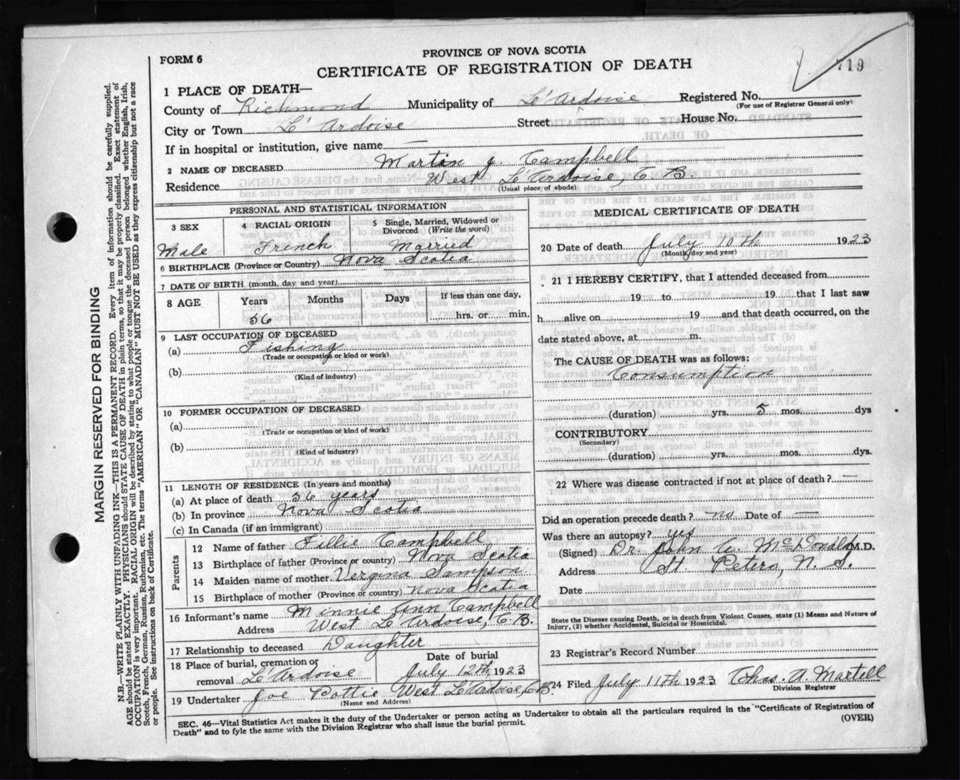 719
FORM 6
PROVINCE OF NOVA SCOTIA
CERTIFICATE OF REGISTRATION OF DEATH
1 PLACE OF DEATH—
County of Richmond Municipality of Le'Ardoise Registered No.
(For use of Registrar General only)
City or Town Le'Ardoise Street House No.
If in hospital or institution, give name —
2 NAME OF DECEASED Martin J. Campbell
Residence West Le'Ardoise, C.B.
(Usual place of abode)
PERSONAL AND STATISTICAL INFORMATION
3 SEX 4 RACIAL ORIGIN 5 Single, Married, Widowed or Divorced (Write the word)
Male French Married
6 BIRTHPLACE (Province or Country) Nova Scotia
7 DATE OF BIRTH (month, day, and year)
8 AGE Years Months Days If less than one day,
56 hrs. or min.
9 LAST OCCUPATION OF DECEASED
(a) Fishing
(Trade or occupation or kind of work)
(b)
(Kind of industry)
10 FORMER OCCUPATION OF DECEASED
(a)
(Trade or occupation or kind of work)
(b)
(Kind of industry)
11 LENGTH OF RESIDENCE (In years and months)
(a) At place of death 56 years
(b) In province Nova Scotia
(c) In Canada (if an immigrant)
Parents
12 Name of father Fillie Campbell
13 Birthplace of father (Province or country) Nova Scotia
14 Maiden name of mother Vergina Sampson
15 Birthplace of mother (Province or country) Nova Scotia
16 Informant's name Minnie Ann Campbell
Address West Le'Ardoise, C.B.
17 Relationship to deceased Daughter
18 Place of burial, cremation or removal Le'Ardoise Date of burial July 12th, 1923
19 Undertaker Joe Pottie West Le'Ardoise C.B.
(Name and Address)
MEDICAL CERTIFICATE OF DEATH
20 Date of death July 10th 1923
(Month, day and year)
21 I HEREBY CERTIFY, that I attended deceased from
19 to 19 that I last saw
h alive on 19 and that death occurred, on the
date stated above, at m.
The CAUSE OF DEATH was as follows:
Consumption
(duration) yrs. 5 mos. dys
CONTRIBUTORY
(Secondary)
(duration) yrs. mos. dys.
22 Where was disease contracted if not at place of death? —
Did an operation precede death? no Date of —
Was there an autopsy? yes
(Signed) Dr. John A. McDonald M.D.
Address St. Peters, N.S.
Date
State the Disease causing Death, or in death from Violent Causes, state (1) Means and Nature of Injury, (2) whether Accidental, Suicidal or Homicidal.
23 Registrar's Record Number
24 Filed July 11th 1923 Chas. A. Martell
Division Registrar
SEC. 46—Vital Statistics Act makes it the duty of the Undertaker or person acting as Undertaker to obtain all the particulars required in the "Certificate of Registration of
Death" and to fyle the same with the Division Registrar who shall issue the burial permit.
(OVER)
MARGIN RESERVED FOR BINDING
N.B.—WRITE PLAINLY WITH UNFADING INK—THIS IS A PERMANENT RECORD. Every item of information should be carefully supplied.
AGE should be stated EXACTLY. PHYSICIANS should STATE CAUSE OF DEATH in plain terms, so that it may be properly classified. Exact statement of
OCCUPATION is very important. RACIAL ORIGIN will be described by stating to what people or tongue the deceased person belonged whether English, Irish,
Scotch, French, German, Russian, Ruthenian, etc. The terms "AMERICAN" OR "CANADIAN" MUST NOT BE USED as they express citizenship but not a race
or people. See instructions on back of Certificate.